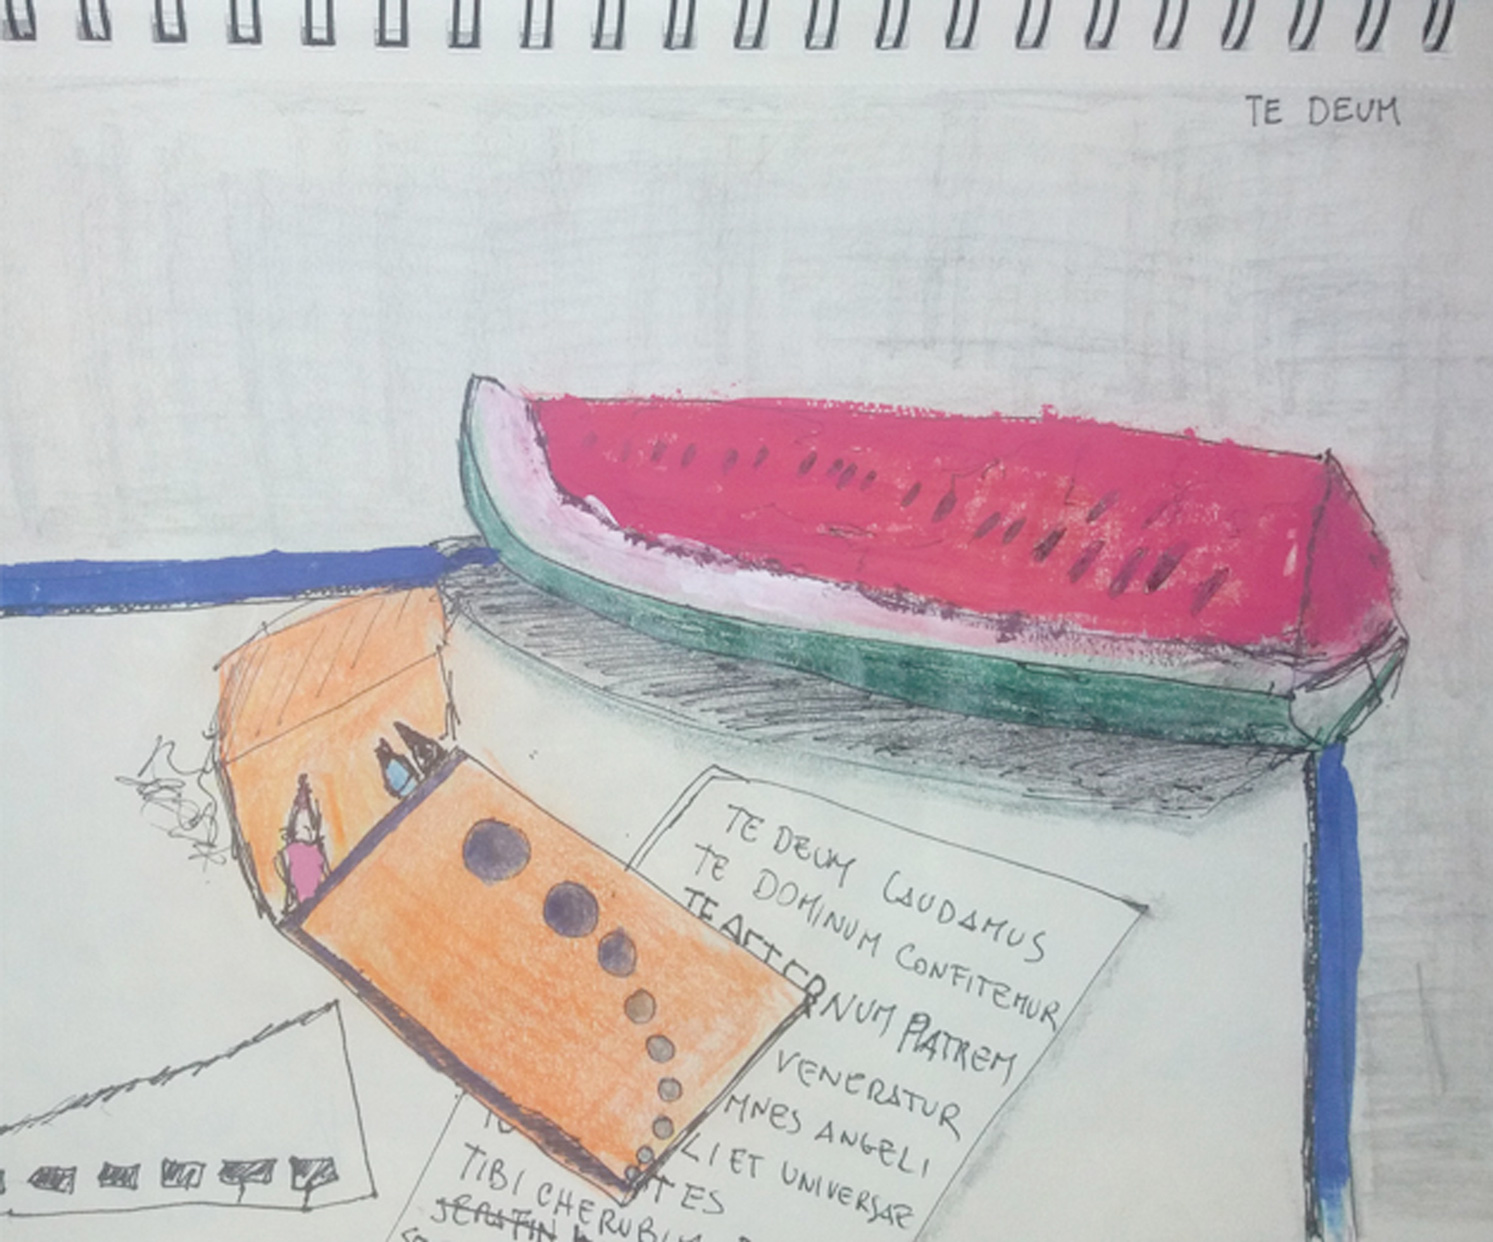 TE DEUM
TE DEUM LAUDAMUS
TE DOMINUM CONFITEMUR
TE AETERNUM PATREM
VENERATUR
MNES ANGELI
LI ET UNIVERSAE
TES
TIBI CHERUBIM